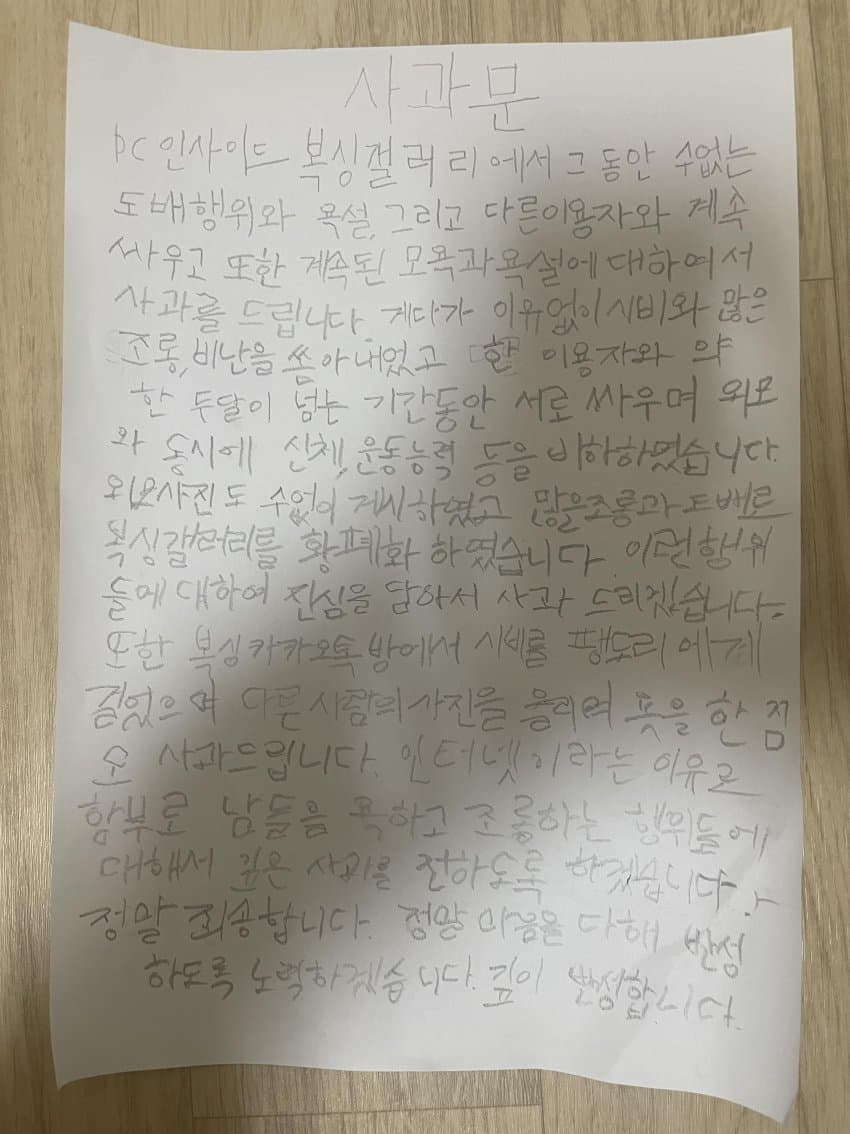 사과문
DC인사이드 복싱갤러리에서 그동안 수없는
도배행위와 욕설, 그리고 다른이용자와 계속
싸우고 또한 계속된 모욕과욕설에대하여서
사과를 드립니다. 게다가 이유없이시비와 많은
조롱,비난을 쏨아내었고 한 이용자와 약
한 두달이 넘는 기간동안 서로 싸우며 외모
와 동시에 신체,운동능력 등을 비하하였습니다.
외모사진도 수없이 게시하였고 많은조롱과 도배로
복싱갤러리를 황폐화 하였습니다. 이런행위
들에대하여 진심을 담아서 사과 드리겠습니다.
또한 복싱카카오톡방에서 시비를 팽도리에게
걸었으며 다른사람의사진을 올리며 욕을 한 점
도 사과드립니다. 인터넷이라는 이유로
함부로 남들을 욕하고 조롱하는 행위들에
대해서 깊은 사과를 전하도록 하겠습니다.
정말 죄송합니다. 정말 마음을 다해 반성
하도록 노력하겠습니다. 깊이 반성합니다.